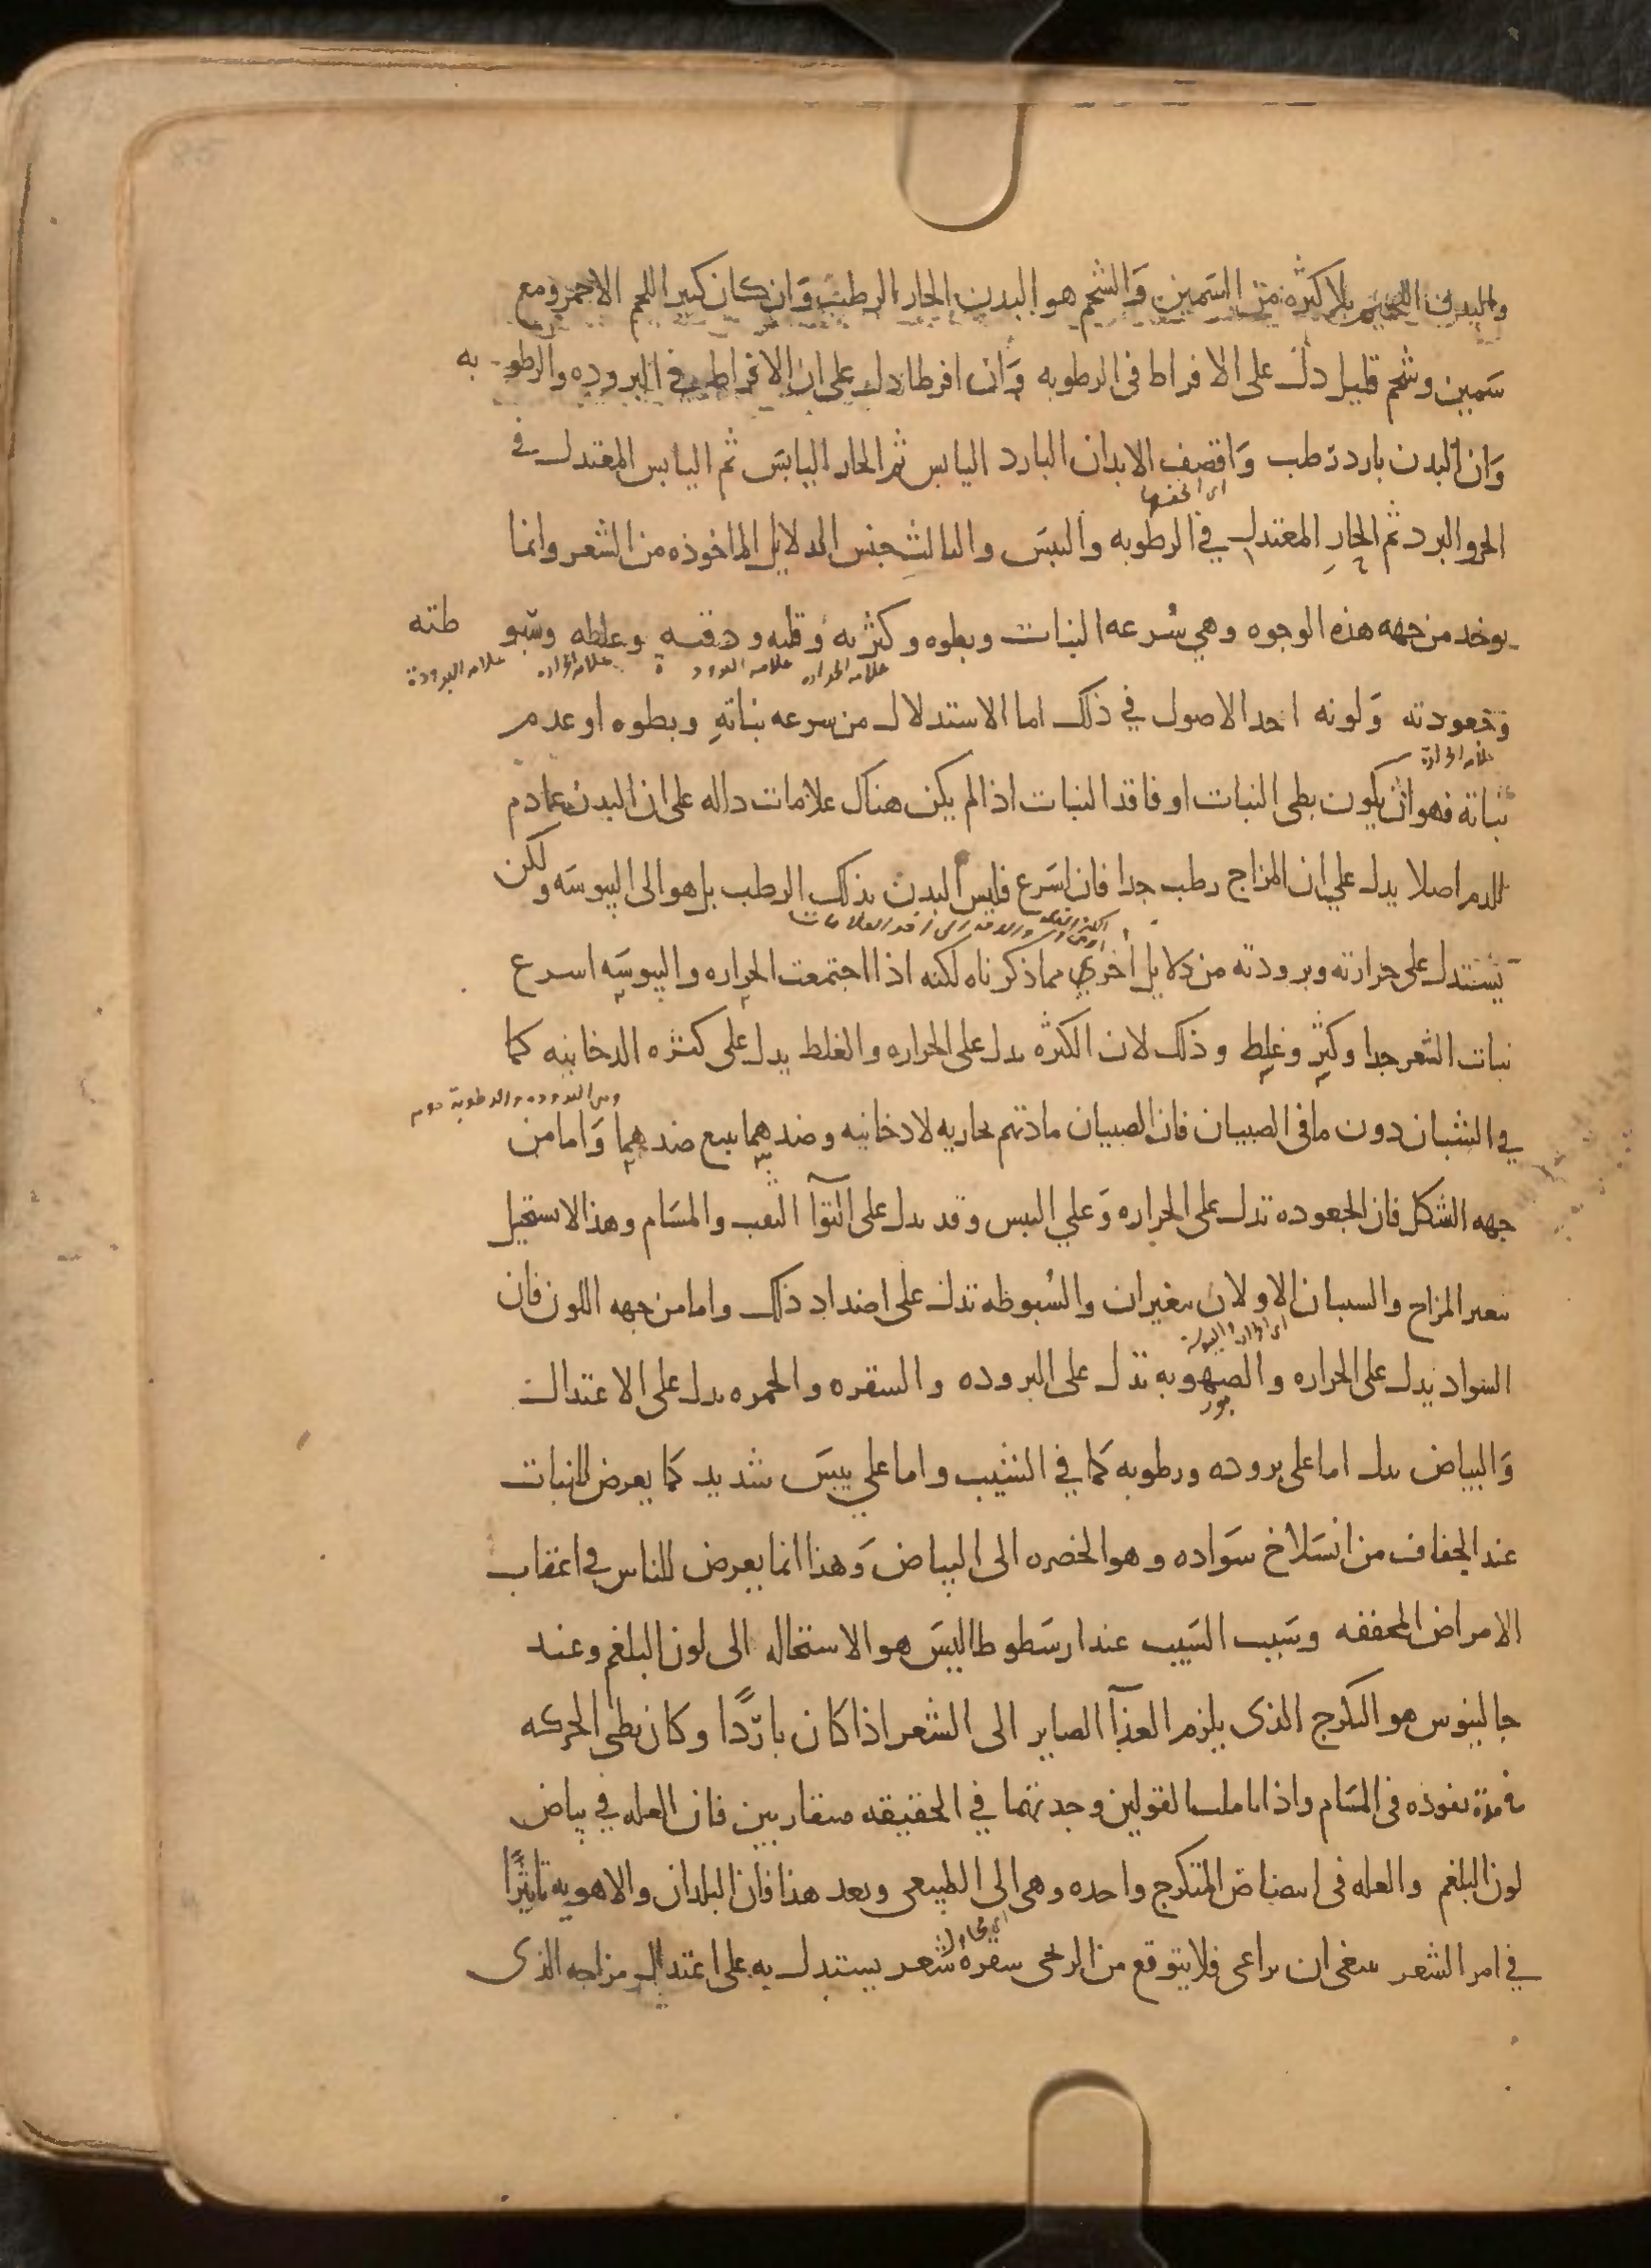 والبدن اللحيم بلا كثره من السمين والشحم هو البدن الحار الرطب وان كان كبير اللحم الاحمر ومع
سمين وشحم قليل دل على الافراط فى الرطوبه وان افرطا دل على ان الافراط في البروده والرطوبه
وان البدن بارد رطب واقصف الابدان البارد اليابس ثم الحار اليابس ثم اليابس المعتدل في
الحر والبرد ثم الحار المعتدل في الرطوبه واليبس والثالث جنس الدلايل الماخوذه من الشعر وانما
يوخذ من جهه هذه الوجوه وهي سرعه النبات وبطوه وكثرته وقلته ودقته وغلطه وسبوطته
علامه الحراره علامه البرودة علامه الحراره علامه البرودة
وجعودته ولونه احد الاصول في ذلك اما الاستدلال من سرعه نباته وبطوه او عدم
علامه الحرارة
نباته فهو ان يكون بطى النبات او فاقد النبات اذا لم يكن هناك علامات داله على ان البدن عادم
للدم اصلا يدل على ان المزاج رطب جدا فان اسرع فليس البدن بذلك الرطب بل هو الى اليبوسه ولكن
يستدل على حرارته وبرودته من دلايل اخري مما ذكرناه لكنه اذا اجتمعت الحراره واليبوسه اسرع
نبات الشعر جدا وكثر وغلط وذلك لان الكثره يدل على الحراره والغلط يدل على كثره الدخانيه كما
في الشبان دون ما فى الصبيان فان الصبيان مادتهم بخاريه لا دخانيه وضدهما يتبع ضدهما واما من
جهه الشكل فان الجعوده تدل على الحراره وعلي اليبس وقد يدل على التوآ الثقب والمسام وهذا لا يستحيل
بتغير المزاج والسببان الاولان يتغيران والسبوطه تدل على اضداد ذلك واما من جهه اللون فان
السواد يدل على الحراره والصهوبه تدل على البروده والشقره والحمره يدل على الاعتدال
والبياض يدل اما على بروده ورطوبه كما في الشيب واما علي يبس شديد كما يعرض للنبات
عند الجفاف من انسلاخ سواده وهو الخضره الى البياض وهذا انما يعرض للناس في اعقاب
الامراض المجففه وسبب الشيب عند ارسطوطاليس هو الاستحاله الى لون البلغم وعند
جالينوس هو التكرج الذى يلزم الغذآ الصاير الى الشعر اذا كان باردًا وكان بطى الحركه
مدة نفوذه فى المسام واذا تاملت القولين وجدتهما في الحقيقه متقاربين فان العله في بياض
لون البلغم والعله فى ابيضاض المتكرج واحده وهى الى الطبيعى وبعد هذا فان للبلدان والاهويه تاثيرًا
في امر الشعر ينبغى ان يراعى فلا يتوقع من الزنجى شقره شعر يستدل به على اعتدال مزاجه الذى